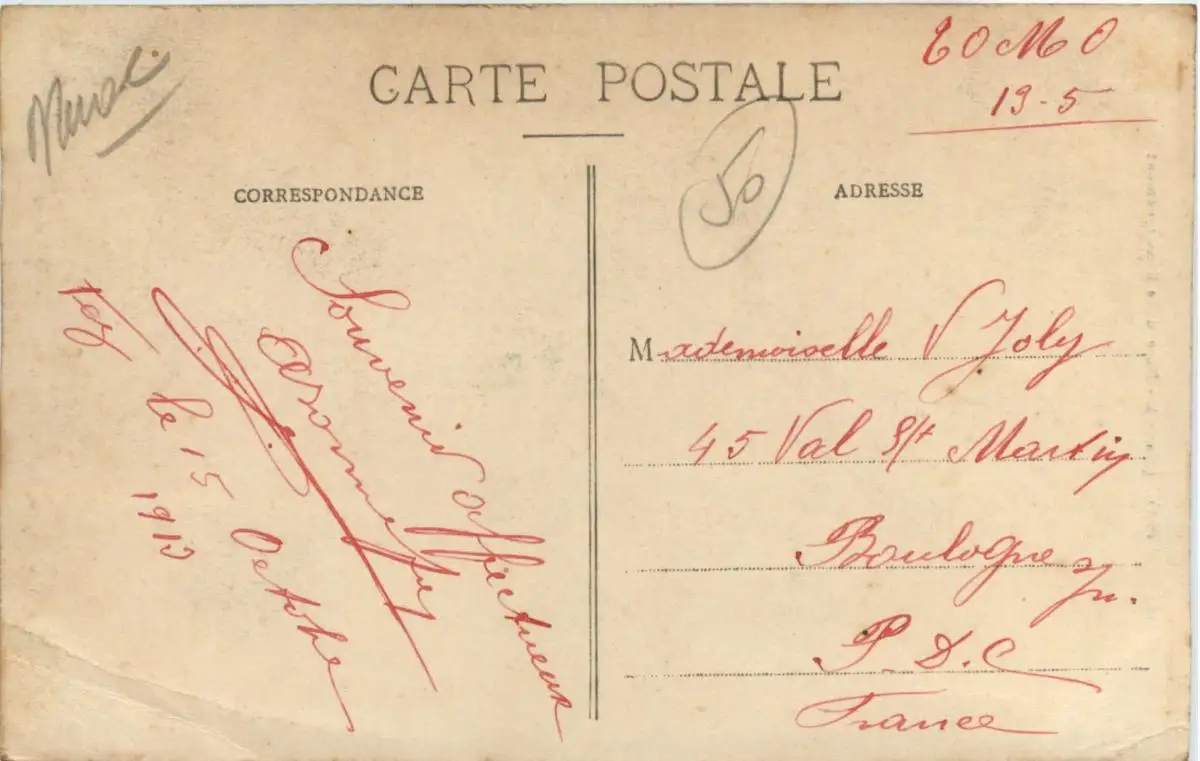 CARTE POSTALE
19-5
50
CORRESPONDANCE
ADRESSE
Souvenir affectueux
Fez
le 15 Octobre
Mademoiselle V Joly
45 Val S/t Martin
Boulogne
P. D. C
France